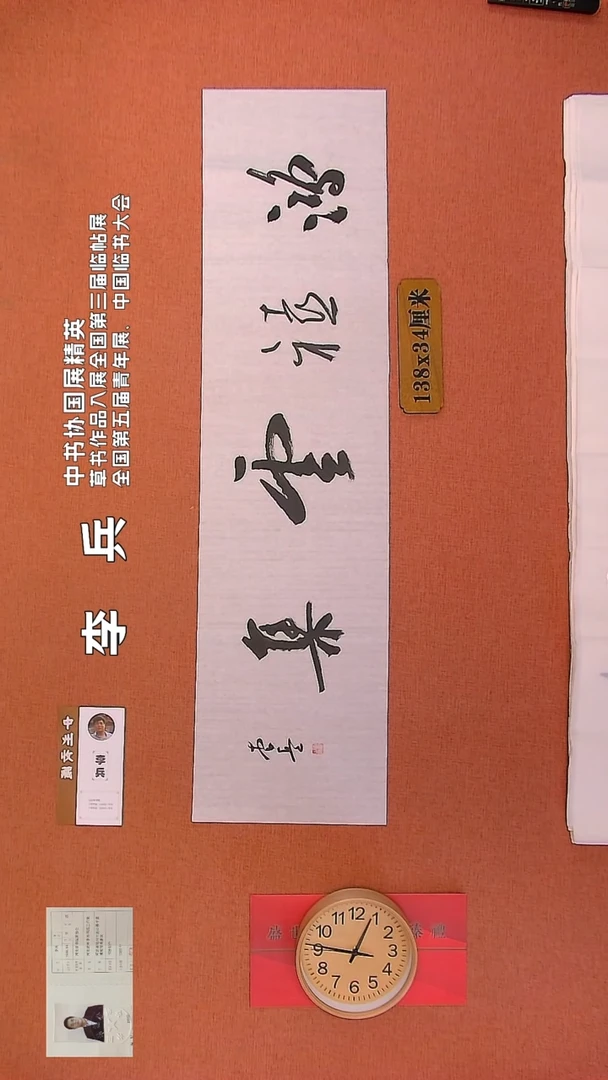 中书协国展精英
草书作品入展全国第三届临帖展
全国第五届青年展，中国临书大会
李 兵
鸿禧雲集
138x34厘米
12 1 2 3 4 5 6 7 8 9 10 11